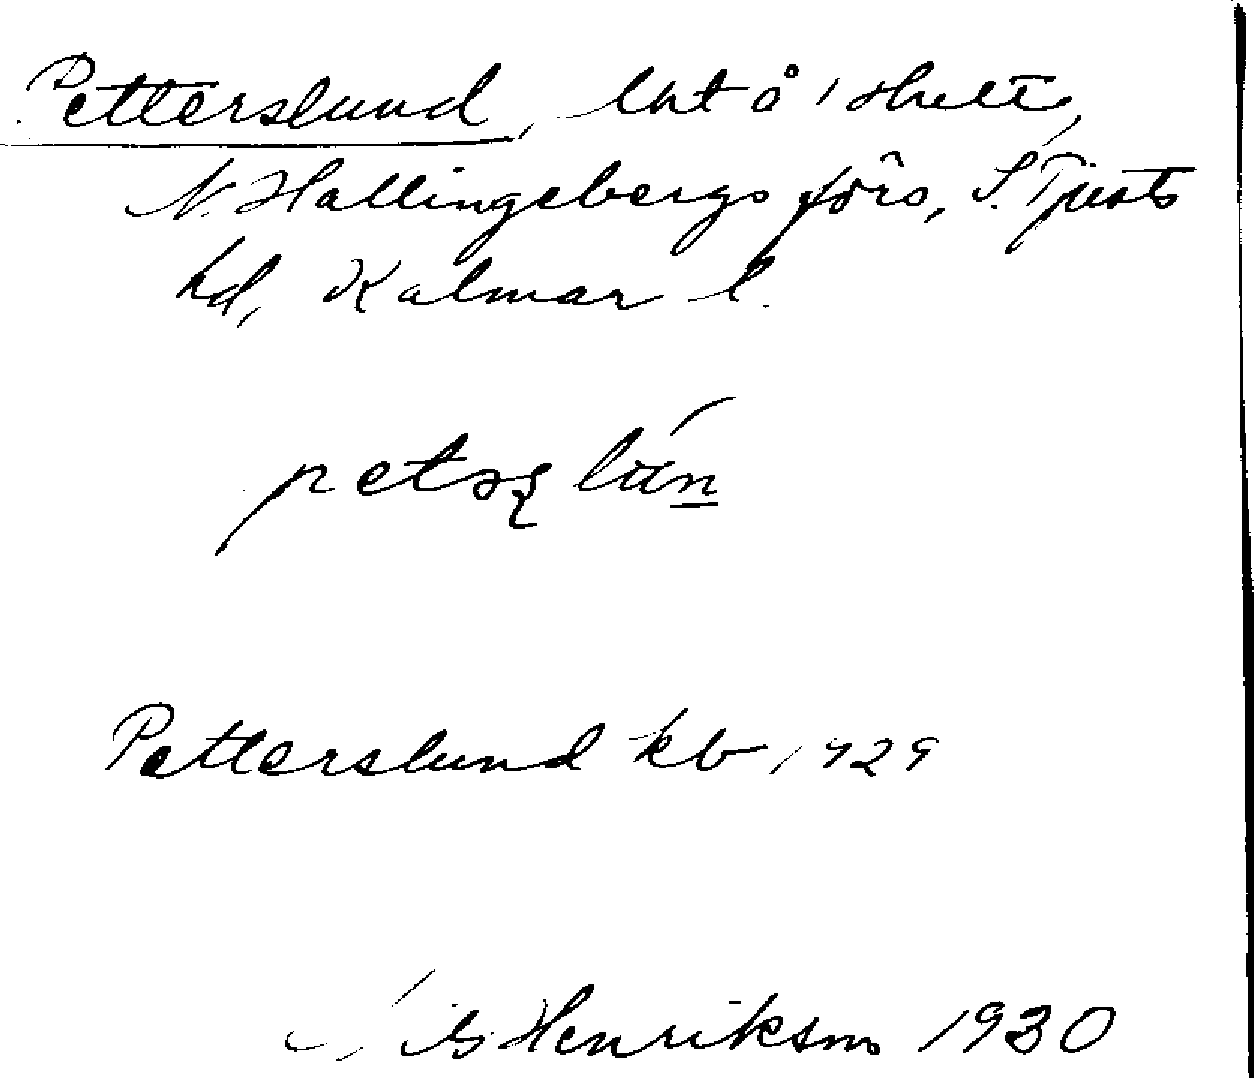 Petterslund, lht å
N. Hallingebergs förs, S. Tjusts
hd, Kalmar l.
Petterslund kb 1929
Henrikson 1930